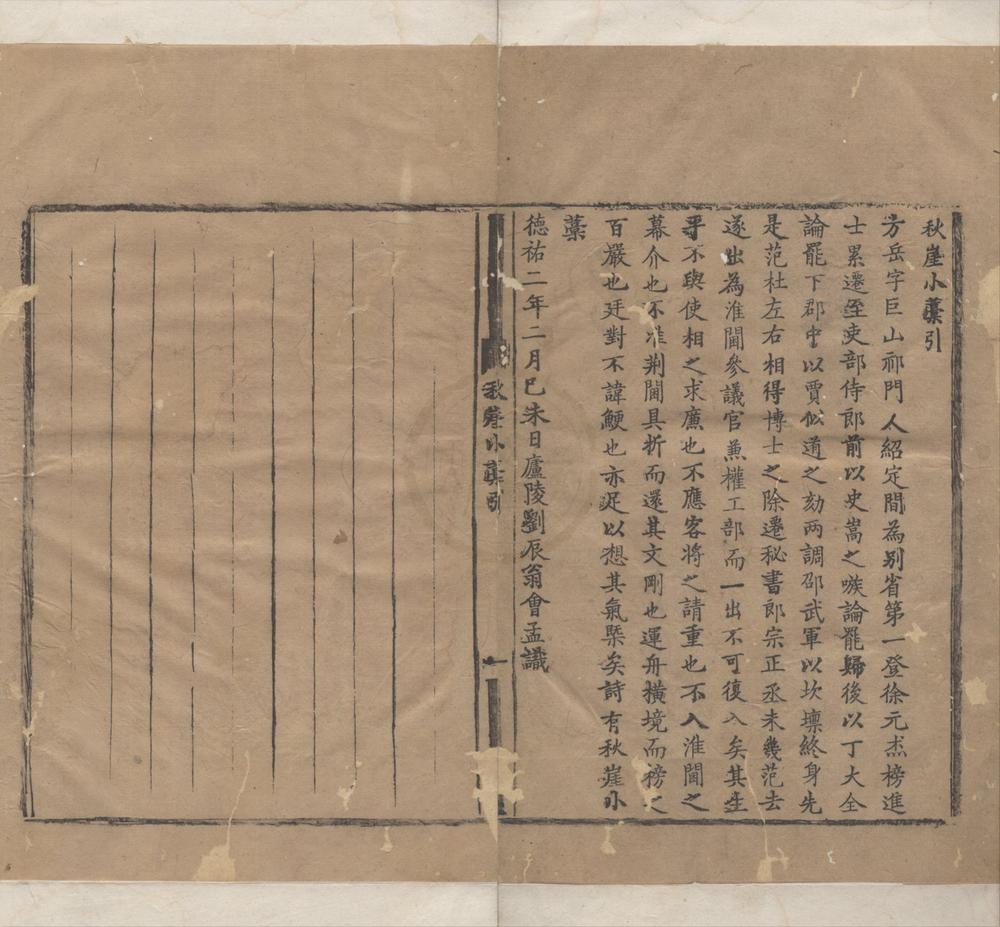 秋崖小藁引
方岳字巨山祁門人紹定間為别省第一登徐元杰榜進
士累遷至吏部侍郎前以史嵩之嗾論罷歸後以丁大全
論罷下郡中以賈似道之劾两調邵武軍以坎壈終身先
是范杜左右相得博士之除遷秘書郎宗正丞未幾范去
遂出為淮閫參議官兼權工部而一出不可復入矣其生
平不與使相之求廉也不應客將之請重也不入淮閫之
幕介也不准荆閫具折而還其文剛也運舟横境而榜之
百嚴也廷對不諱鯁也亦足以想其氣槩矣詩有秋崖小
藁
德祐二年二月巳未日廬陵劉辰翁會孟識
秋崖小藁引
一